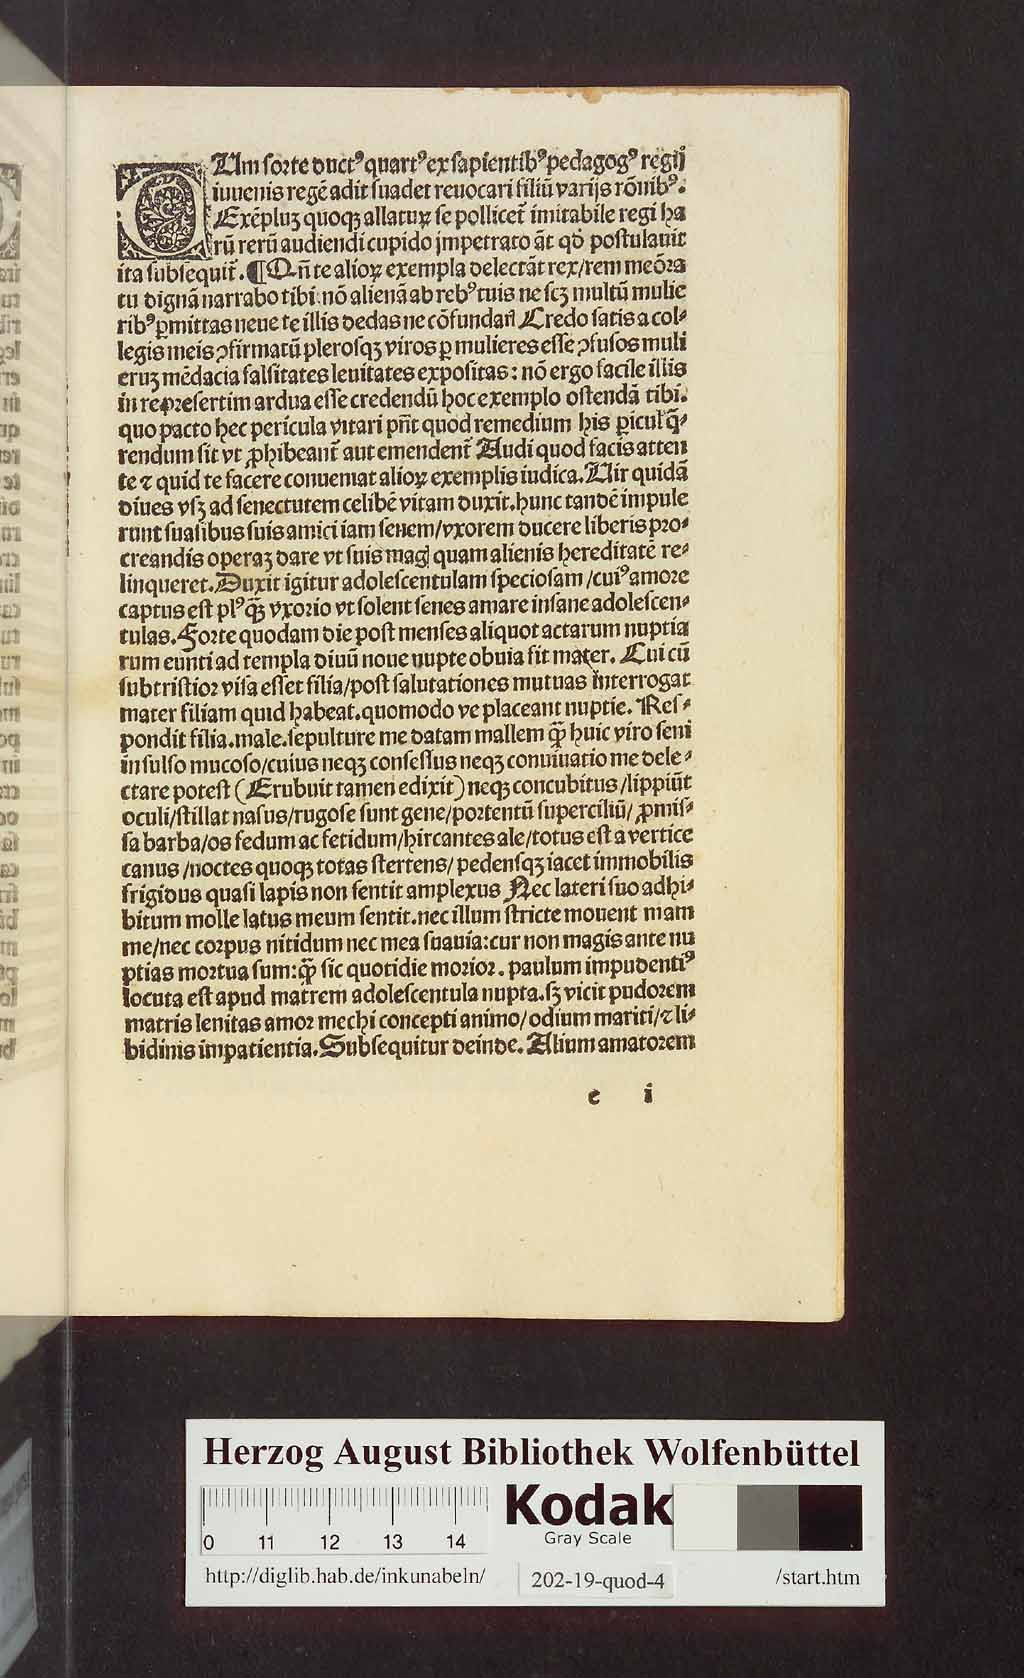 CUm forte duct⁹ quart⁹ ex sapientib⁹ pedagog⁹ regij
iuuenis regē adit suadet reuocari filiū varijs rōnib⁹.
Exēpluꝫ quoqꝫ allatuꝝ se pollicet̄ imitabile regi ha
rū rerū audiendi cupido impetrato āt qď postulauit
ita subsequit̄. ¶ Qn̄ te alioꝝ exempla delectāt rex/rem meōra
tu dignā narrabo tibi nō alienā ab reb⁹ tuis ne scꝫ multū mulie
rib⁹ ꝑmittas neue te illis dedas ne cōfundar̄ Credo satis a col⸗
legis meis ꝯfirmatū plerosqꝫ viros ꝑ mulieres esse ꝯfusos muli
eruꝫ mēdacia falsitates leuitates expositas: nō ergo facile illis
in re presertim ardua esse credendū hoc exemplo ostendā tibi.
quo pacto hec pericula vitari pn̄t quod remedium his ꝑicul q̄⸗
rendum sit vt ꝓhibeant̄ aut emendent̄ Audi quod facis atten
te ⁊ quid te facere conueniat alioꝝ exemplis iudica. Uir quidā
diues vsqꝫ ad senectutem celibē vitam duxit. hunc tandē impule
runt suasibus suis amici iam senem/vxorem ducere liberis pro⸗
creandis operaꝫ dare vt suis magꝭ quam alienis hereditatē re⸗
linqueret. Duxit igitur adolescentulam speciosam/cui⁹ amore
captus est pl⁹ qꝫ̄ vxorio vt solent senes amare insane adolescen⸗
tulas. Forte quodam die post menses aliquot actarum nuptia
rum eunti ad templa diuū noue nupte obuia fit mater. Cui cū
subtristior visa esset filia/post salutationes mutuas interrogat
mater filiam quid habeat. quomodo ve placeant nuptie. Res⸗
pondit filia. male. sepulture me datam mallem qꝫ̄ huic viro seni
insulso mucoso/cuius neqꝫ confessus neqꝫ conuiuatio me dele⸗
ctare potest (Erubuit tamen edixit) neqꝫ concubitus/lippiūt
oculi/stillat nasus/rugose sunt gene/portentū superciliū/ꝓmis⸗
sa barba/os fedum ac fetidum/hircantes ale/totus est a vertice
canus/noctes quoqꝫ totas stertens/pedensqꝫ iacet immobilis
frigidus quasi lapis non sentit amplexus Nec lateri suo adhi⸗
bitum molle latus meum sentit. nec illum stricte mouent mam
me/nec corpus nitidum nec mea suauia: cur non magis ante nu
ptias mortua sum: qꝫ̄ sic quotidie morior. paulum impudenti⁹
locuta est apud matrem adolescentula nupta. sꝫ vicit pudorem
matris lenitas amor mechi concepti animo/odium mariti/⁊ li⸗
bidinis impatientia. Subsequitur deinde. Alium amatorem
e i
Herzog August Bibliothek Wolfenbüttel
Kodak
Gray Scale
0 11 12 13 14
http://diglib.hab.de/inkunabeln/ 202-19-quod-4 /start.htm